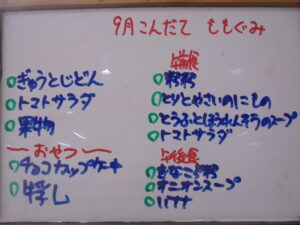 9月こんだて ももぐみ
ぎゅうとじどん
トマトサラダ
果物
おやつ
チョコカップケーキ
牛乳
午前食
粥
とりとやさいのにもの
とうふとほうれんそうのスープ
トマトサラダ
午後食
きなこ粥
オニオンスープ
バナナ